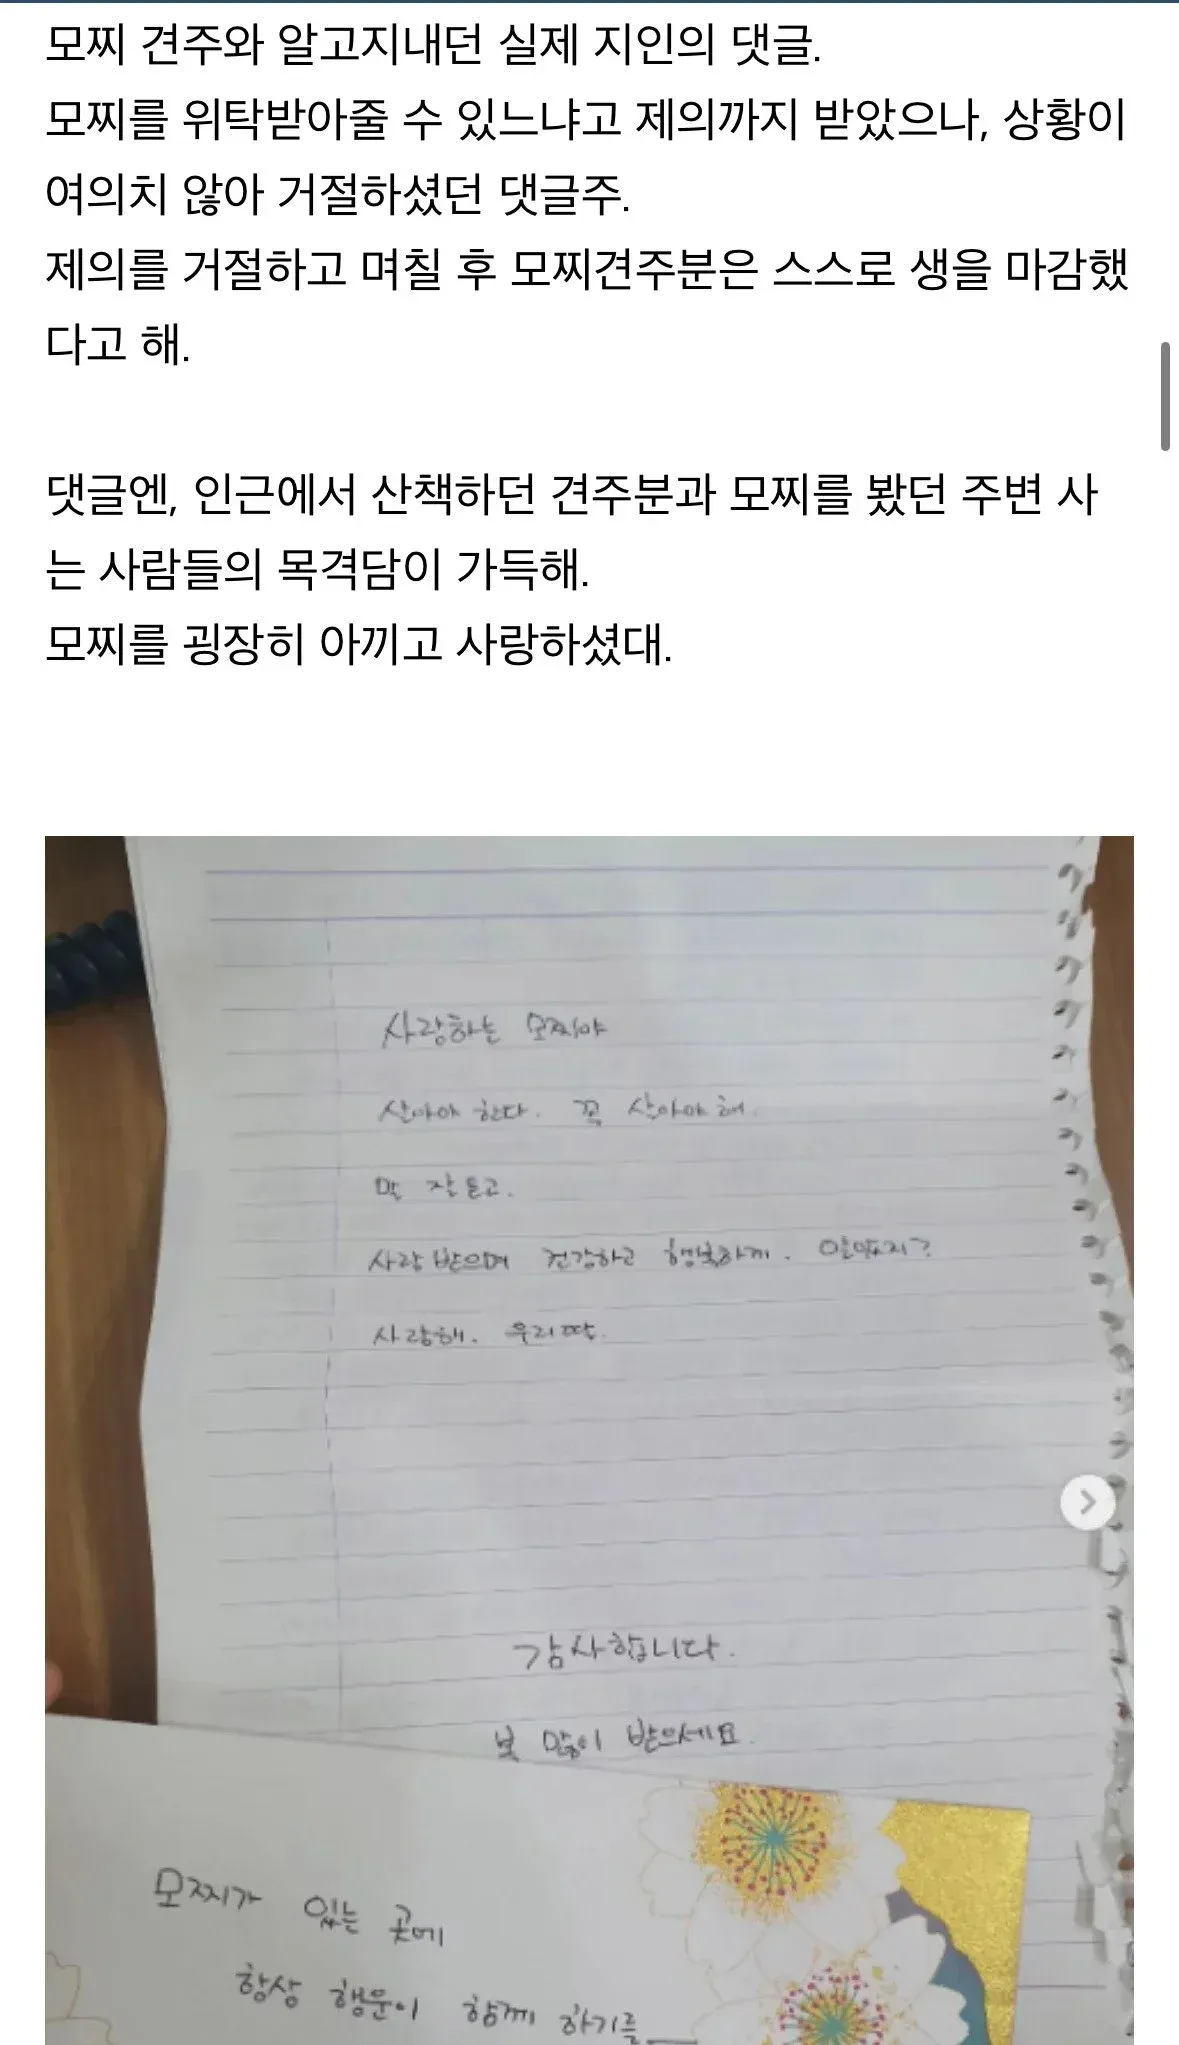 모찌 견주와 알고지내던 실제 지인의 댓글.
모찌를 위탁받아줄 수 있느냐고 제의까지 받았으나, 상황이
여의치 않아 거절하셨던 댓글주.
제의를 거절하고 며칠 후 모찌견주분은 스스로 생을 마감했
다고 해.
댓글엔, 인근에서 산책하던 견주분과 모찌를 봤던 주변 사
는 사람들의 목격담이 가득해.
모찌를 굉장히 아끼고 사랑하셨대.
사랑하는 모찌야
살아야 한다. 꼭 살아야 해.
말 잘 듣고.
사랑 받으며 건강하고 행복하게. 알았지?
사랑해. 우리 딸.
감사합니다.
복 많이 받으세요.
모찌가 있는 곳에
항상 행운이 함께 하기를